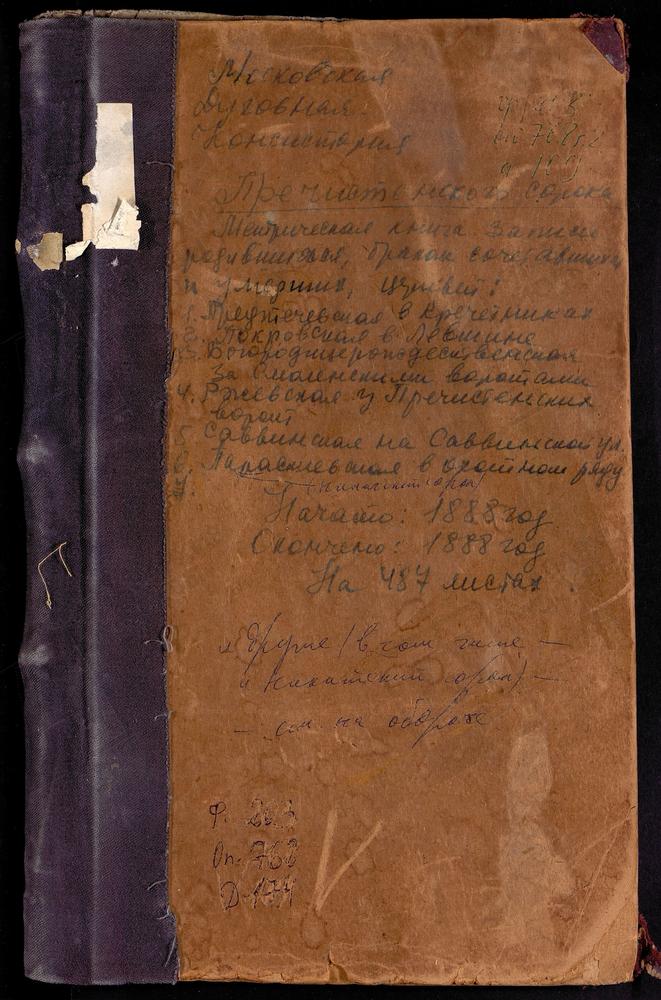 Московская
Духовная
Консистория
Пречистенского сорока
Метрическая книга записи
родившихся, браком сочетавшихся
и умерших, церквей:
1. Предтечевская в Кречетниках
2. Покровская в Левшине
3. Богородицерождественская
за Смоленскими воротами
4. Ржевская у Пречистенских
ворот
5. Саввинская на Саввинской ул.
6. Параскиевская в охотном ряду
7. (Никитский сорок)
Начато: 1888 год
Окончено: 1888 год
На 487 листах
и другие (в том числе —
и Никитский сорок) —
— см. на обороте
Ф. 203
Оп. 768
Д. 174